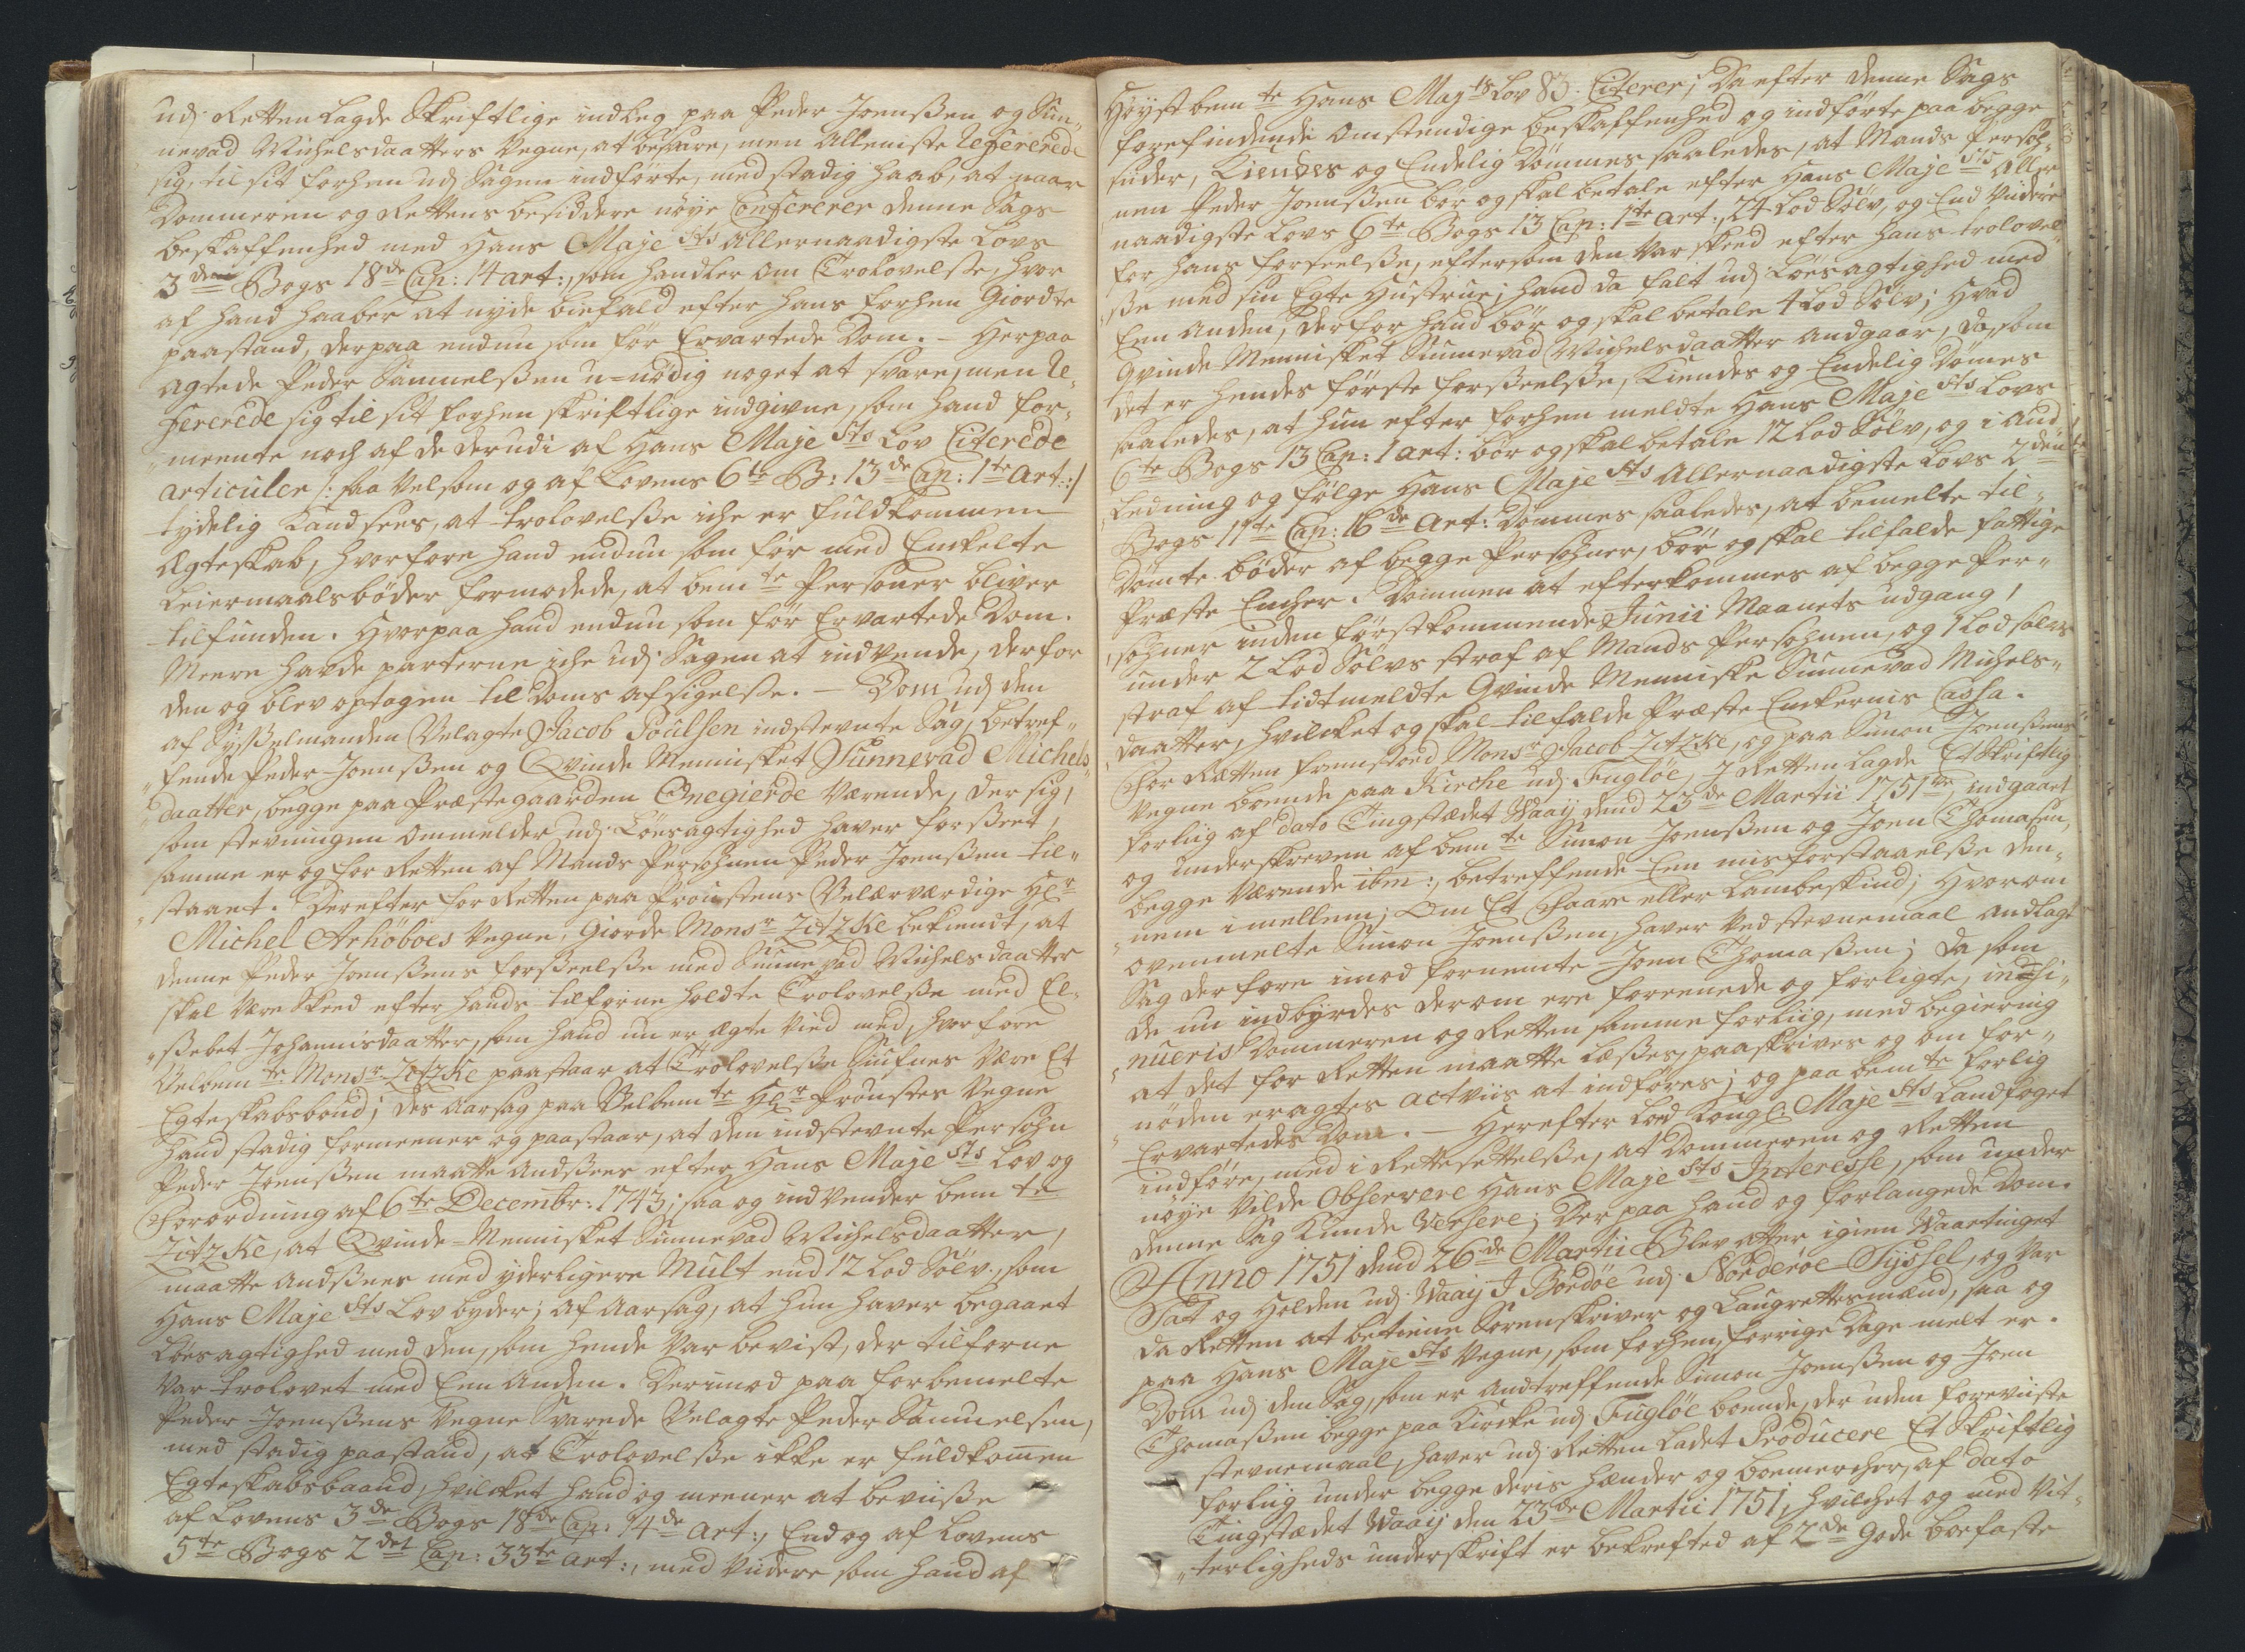 udj Retten lagde Skriftlige indleg paa Peder Joenßen og Sun„
nevad Michelsdaatters Vegne, at besvare, men Alleniste Refererede
sig, til sit forhen udj Sagen indförte, med stadig haab, at naar
Dommeren og Rettens besiddere nöye Confererer denne Sags
beskaffenhed med Hans Maje sts Allernaadigste Lovs
3 die Bogs 18 de Cap: 14 art:, som handler om Trolovelse, hvor
af hand haaber at nyde biefald efter hans forhen Giordte
paastand, derpaa endnu som för Ervartede Dom. – Herpaa
agtede Peder Samuelßen u=nödig noget at svare, men Re„
fererede sig til sit forhen skriftlige indgivne, som hand for„
„meente noch af de derudi af Hans Maje sts Lov Citerede
articuler /: saa vel som og af Lovens 6 te B: 13 de Cap: 1 te Art: :/
tydelig kand sees, at trolovelße iche er fuldkommen
Ægteskab, hvorfore hand endnu som för med Enckelte
Leiermaals böder formodede, at bem te Personer bliver
tilfunden. Hvorpaa hand endnu som för Ervartede Dom.
Meere havde parterne iche udj Sagen at indvende, derfor
den og blev optagen til Doms afsigelße. – Dom udj den
af Sysßelmanden Velagte Jacob Poulsen indstevnte Sag, betref„
„fende Peder Joenßen og Qvinde Mennisket Sunnevad Michels„
„daatter, begge paa Præstegaarden Onegierde Værende, der sig,
som stevningen ommelder udj Löesagtighed haver forßeet,
samme er og for Retten af Mands Persohnen Peder Joenßen til„
„staaet. Derefter for Retten paa Proustens Velærværdige Hr
Michel Arhöboes Vegne, Giorde Monsr Zitz Ke bekiendt, at
denne Peder Joenßens forßeelße med Sunnevad Michelsdaatter
skal være Skeed efter hands tilforne holdte Trolovelße med El„
„ßebet Johannisdaatter, som hand nu er ægte Vied med, hvorfore
Velbem te Monsr Zitz Ke paastaar at Trolovelße Siufnes være Et
Egteskabsbaand; des Aarsag paa Velbem te Hr Proustes Vegne
hand stadig formeener og paastaar, at den indstevnte Persohn
Peder Joenßen maatte Andßees efter Hans Maje sts Lov og
Forordning af 6 te Decembr: 1743; saa og indvender bem te
Zitz Ke, at Qvinde=Mennisket Sunnevad Michelsdaatter,
maatte Andßees med yderligere Mult end 12 Lod Sölv, som
Hans Maje sts Lov byder; af Aarsag, at hun haver begaaet
Löesagtighed med den, som hende var bevist, der tilforne
var trolovet med Een Anden. Derimod paa forbemelte
Peder Joenßens Vegne Svarede Velagte Peder Samuelsen,
med stadig paastand, at Trolovelße ikke er fuldkomen
Egteskabsbaand, hvilcket hand og meener at beviiße
af Lovens 3 de Bogs 18 de Cap: 14 de Art:, End og af Lovens
5 te Bogs 2 det Cap: 33 te art:, med Viidere som hand af
Höystbem te Hans May ts Lov 83. Citerer; Da efter denne Sags
forefindende omstendige beskaffenhed og indförte paa begge
siider, Kiendes og Endelig Dömmes saaledes, at Mands Persoh„
nen Peder Joenßen bör og skal betale efter Hans Maje sts Aller
naadigste Lovs 6 te Bogs 13 Cap: 1 te art:, 24 Lod Sölv, og End Viidere
for hans forseelße, eftersom den var skeed efter hans trolovel„
„ße med sin Egte Hustrue; hand da falt udj Löesagtighed med
Een Anden, derfor hand bör og skal betale 4 Lod Sölv; Hvad
Qvinde Mennisket Sunnevad Michelsdaatter Andgaar, da, som
det er hendes förste forßeelße, Kiendes og Endelig Dömes
saaledes, at hun efter forhen meldte Hans Maje sts Lovs
6 te Bogs 13 Cap: 1 art: bör og skal betale 12 Lod Sölv, og i And„
ledning og fölge Hans Maje sts Allernaadigste Lovs 2 den
Bogs 11 te Cap: 16 de Art: Dömmes saaledes, at bemelte til„
dömte böder af begge Persohner, bör og skal tilfalde fattige
Præste Encher. Dommen at efterkommes af begge Per„
„sohner inden förstkommende Junii Maanets udgang,
under 2 Lod Sölvs straf af Mands Persohnen, og 1 Lod Sölvs
straf af tidtmeldte Qvinde Menniske Sunnevad Michels„
daatter, hvilcket og skal tilfalde Præste Enckernis Cassa.
For Retten fremstoed Monsr Jacob Zitz Ke, og paa Simon Joenßens
Vegne boende paa Kirche udj Fuglöe, J Retten lagde Et Skriftlig
forliig af dato Tingstædet Waaij dend 23 de Martii 1751 ve, indgaaet
og underskreven af bem te Simon Joenßen og Joen Thomasen,
begge Værende ibm:, betreffende Een misforstaaelße den„
„nem imellem; Om Et Faare eller Lambeskind; Hvorom
ovenmelte Simon Joenßen, haver ved stevnemaal Andlagt
Sag derfore imod fornemte Joen Thomaßen; da som
de nu indbyrdes derom ere foreenede og forligte, indsi„
„nueris Dommeren og Retten samme forliig, med begiering
at det for Retten maatte læßes, paaskrives og om for„
„nöden eragtes actviis at indföres; og paa bem te forlig
Ervartedes Dom. – Herefter lod Kongl: Maje sts Landfoget
indföre, med i Rettesettelße, at Dommeren og Retten
nöye Vilde Observere Hans Maje sts Interesse, som under
denne Sag Kunde Versere; Der paa hand og forlangede Dom.
Anno 1751 dend 26 de Martii Blev atter igien Waartinget
Sat og Holden udj Waaij I Bordöe udj Norderöe Sÿssel, og var
da Retten at betiene Sorenskriver og Laugrettesmænd, saa og
paa Hans Maje sts Vegne, som forhen, forrige dage melt er.
Dom udj den Sag, som er Andtreffende Simon Joenßen og Joen
Thomaßen begge paa Kircke udj Fuglöe boende, der uden foreviiste
stevnemaal, haver udj Retten ladet Producere Et Skriftlig
forliig under begge deris Hænder og boemercher, af dato
Tingstædet Waaij den 23 de Martii 1751, hvilchet og med Vit„
„terligheds underskrift er bekrefted af 2 de Gode boefaste